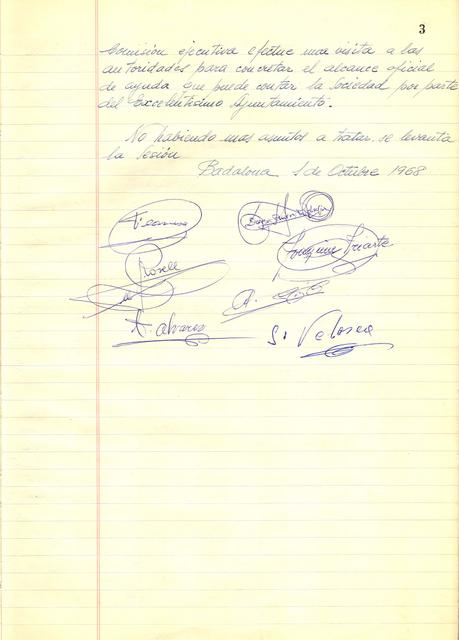 3
Comisión ejecutiva efectue una visita a las
autoridades para concretar el alcance oficial
de ayuda que puede contar la Sociedad por parte
del Excelentisimo Ayuntamiento.
No habiendo mas asuntos a tratar se levanta
la Sesión
Badalona 1 de Octubre 1968
Joaquina Iriarte
Rosell
A. Alvarez
S. Velosca